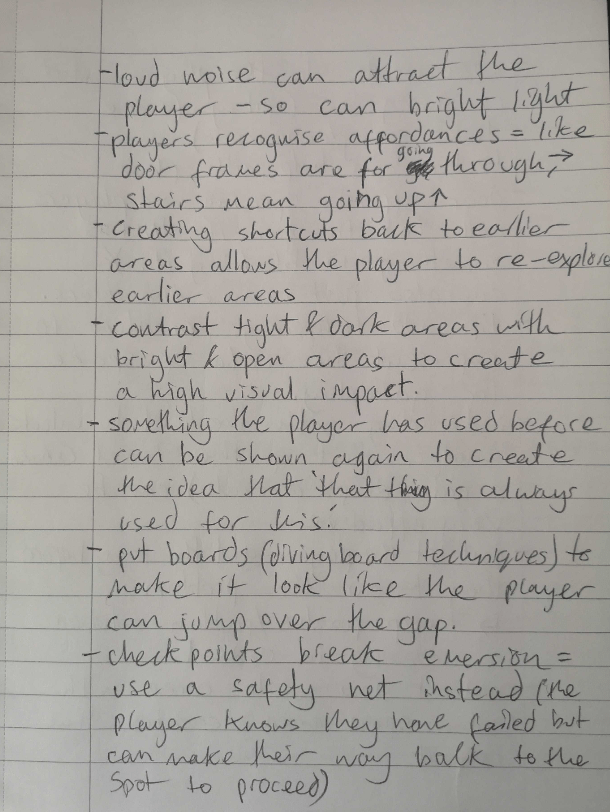 -loud noise can attract the
player - so can bright light
-players recognise affordances = like
door frames are for going through, →
stairs mean going up ↑
- creating shortcuts back to earlier
areas allows the player to re-explore
earlier areas
- contrast tight & dark areas with
bright & open areas to create
a high visual impact.
- something the player has used before
can be shown again to create
the idea that 'that thing is always
used for this.'
- put boards (diving board techniques) to
make it look like the player
can jump over the gap.
- checkpoints break emersion =
use a safety net instead (the
player knows they have failed but
can make their way back to the
spot to proceed)